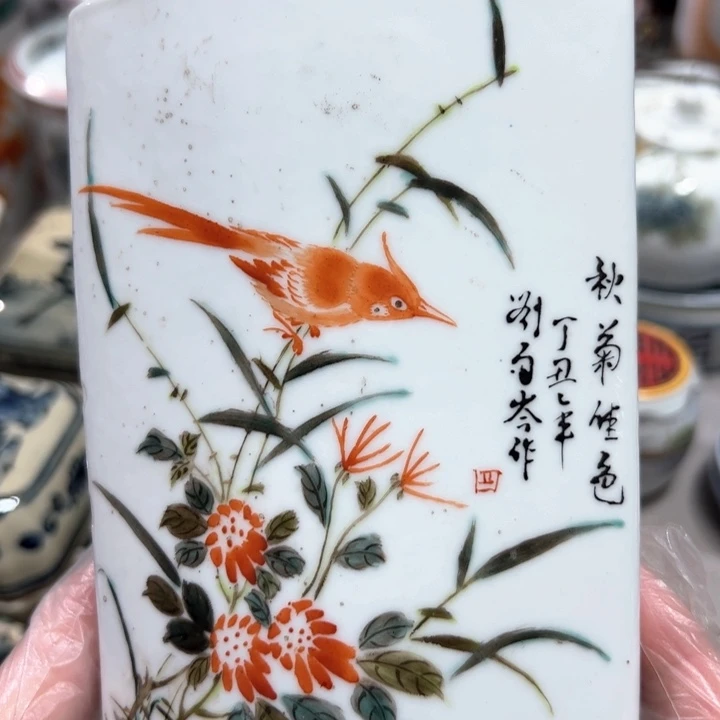 秋菊佳色
丁丑之年
劉雨岑作